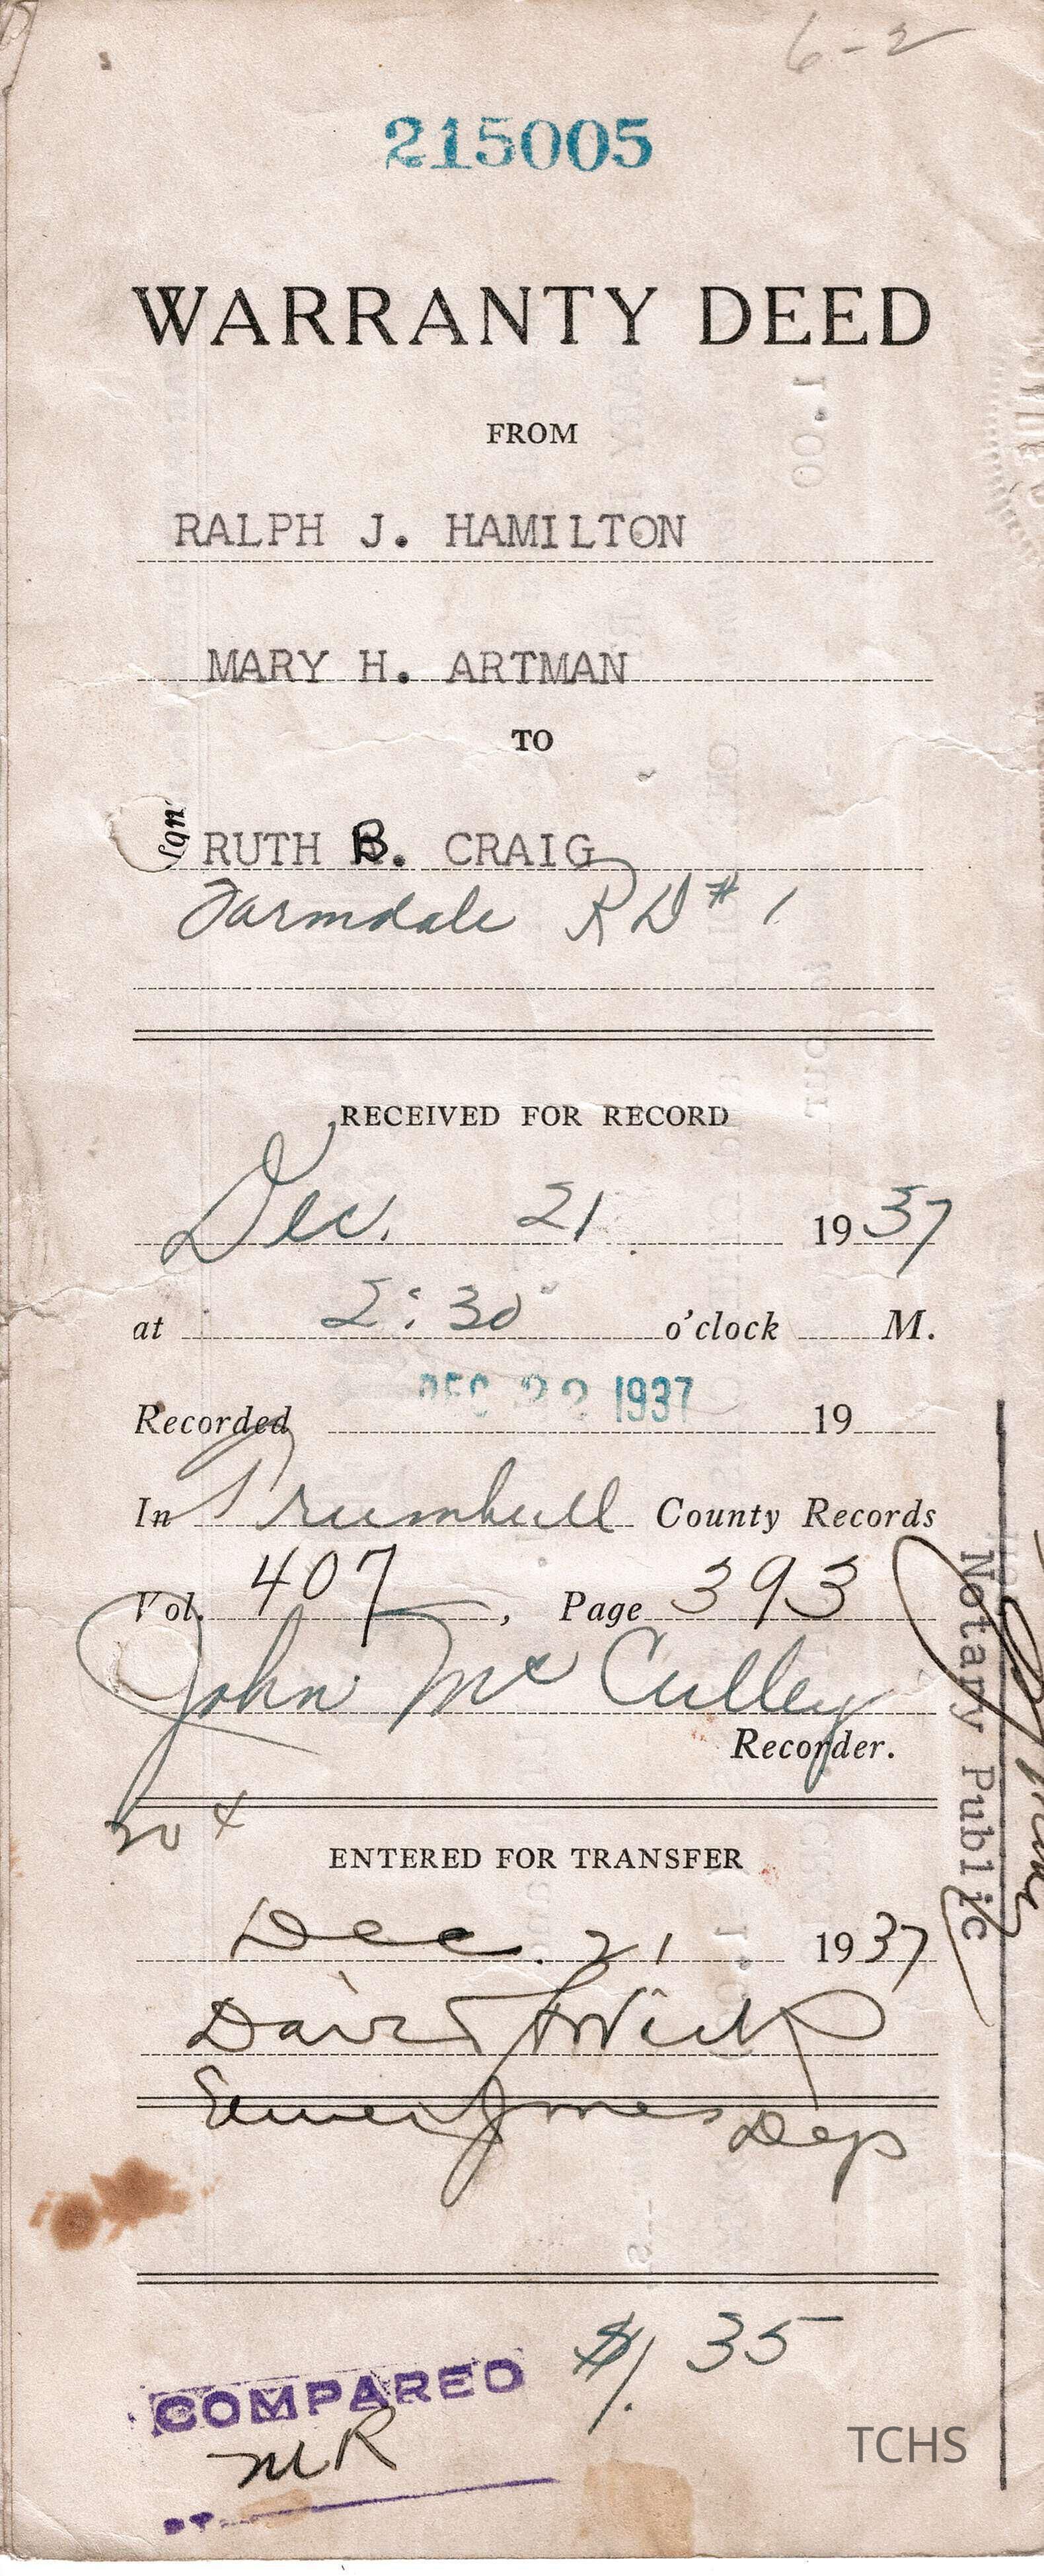 6-2
215005
WARRANTY DEED
FROM
RALPH J. HAMILTON
MARY H. ARTMAN
TO
RUTH B. CRAIG
Farmdale RD #1
RECEIVED FOR RECORD
Dec. 21 1937
at 2:30 o'clock M.
Recorded DEC 22 1937 19
In Trumbull County Records
Vol. 407, Page 393
John McCulley
Recorder.
ENTERED FOR TRANSFER
Dec. 21 1937
David
Jones Dep
$1.35
COMPARED
MR
TCHS
Notary Public